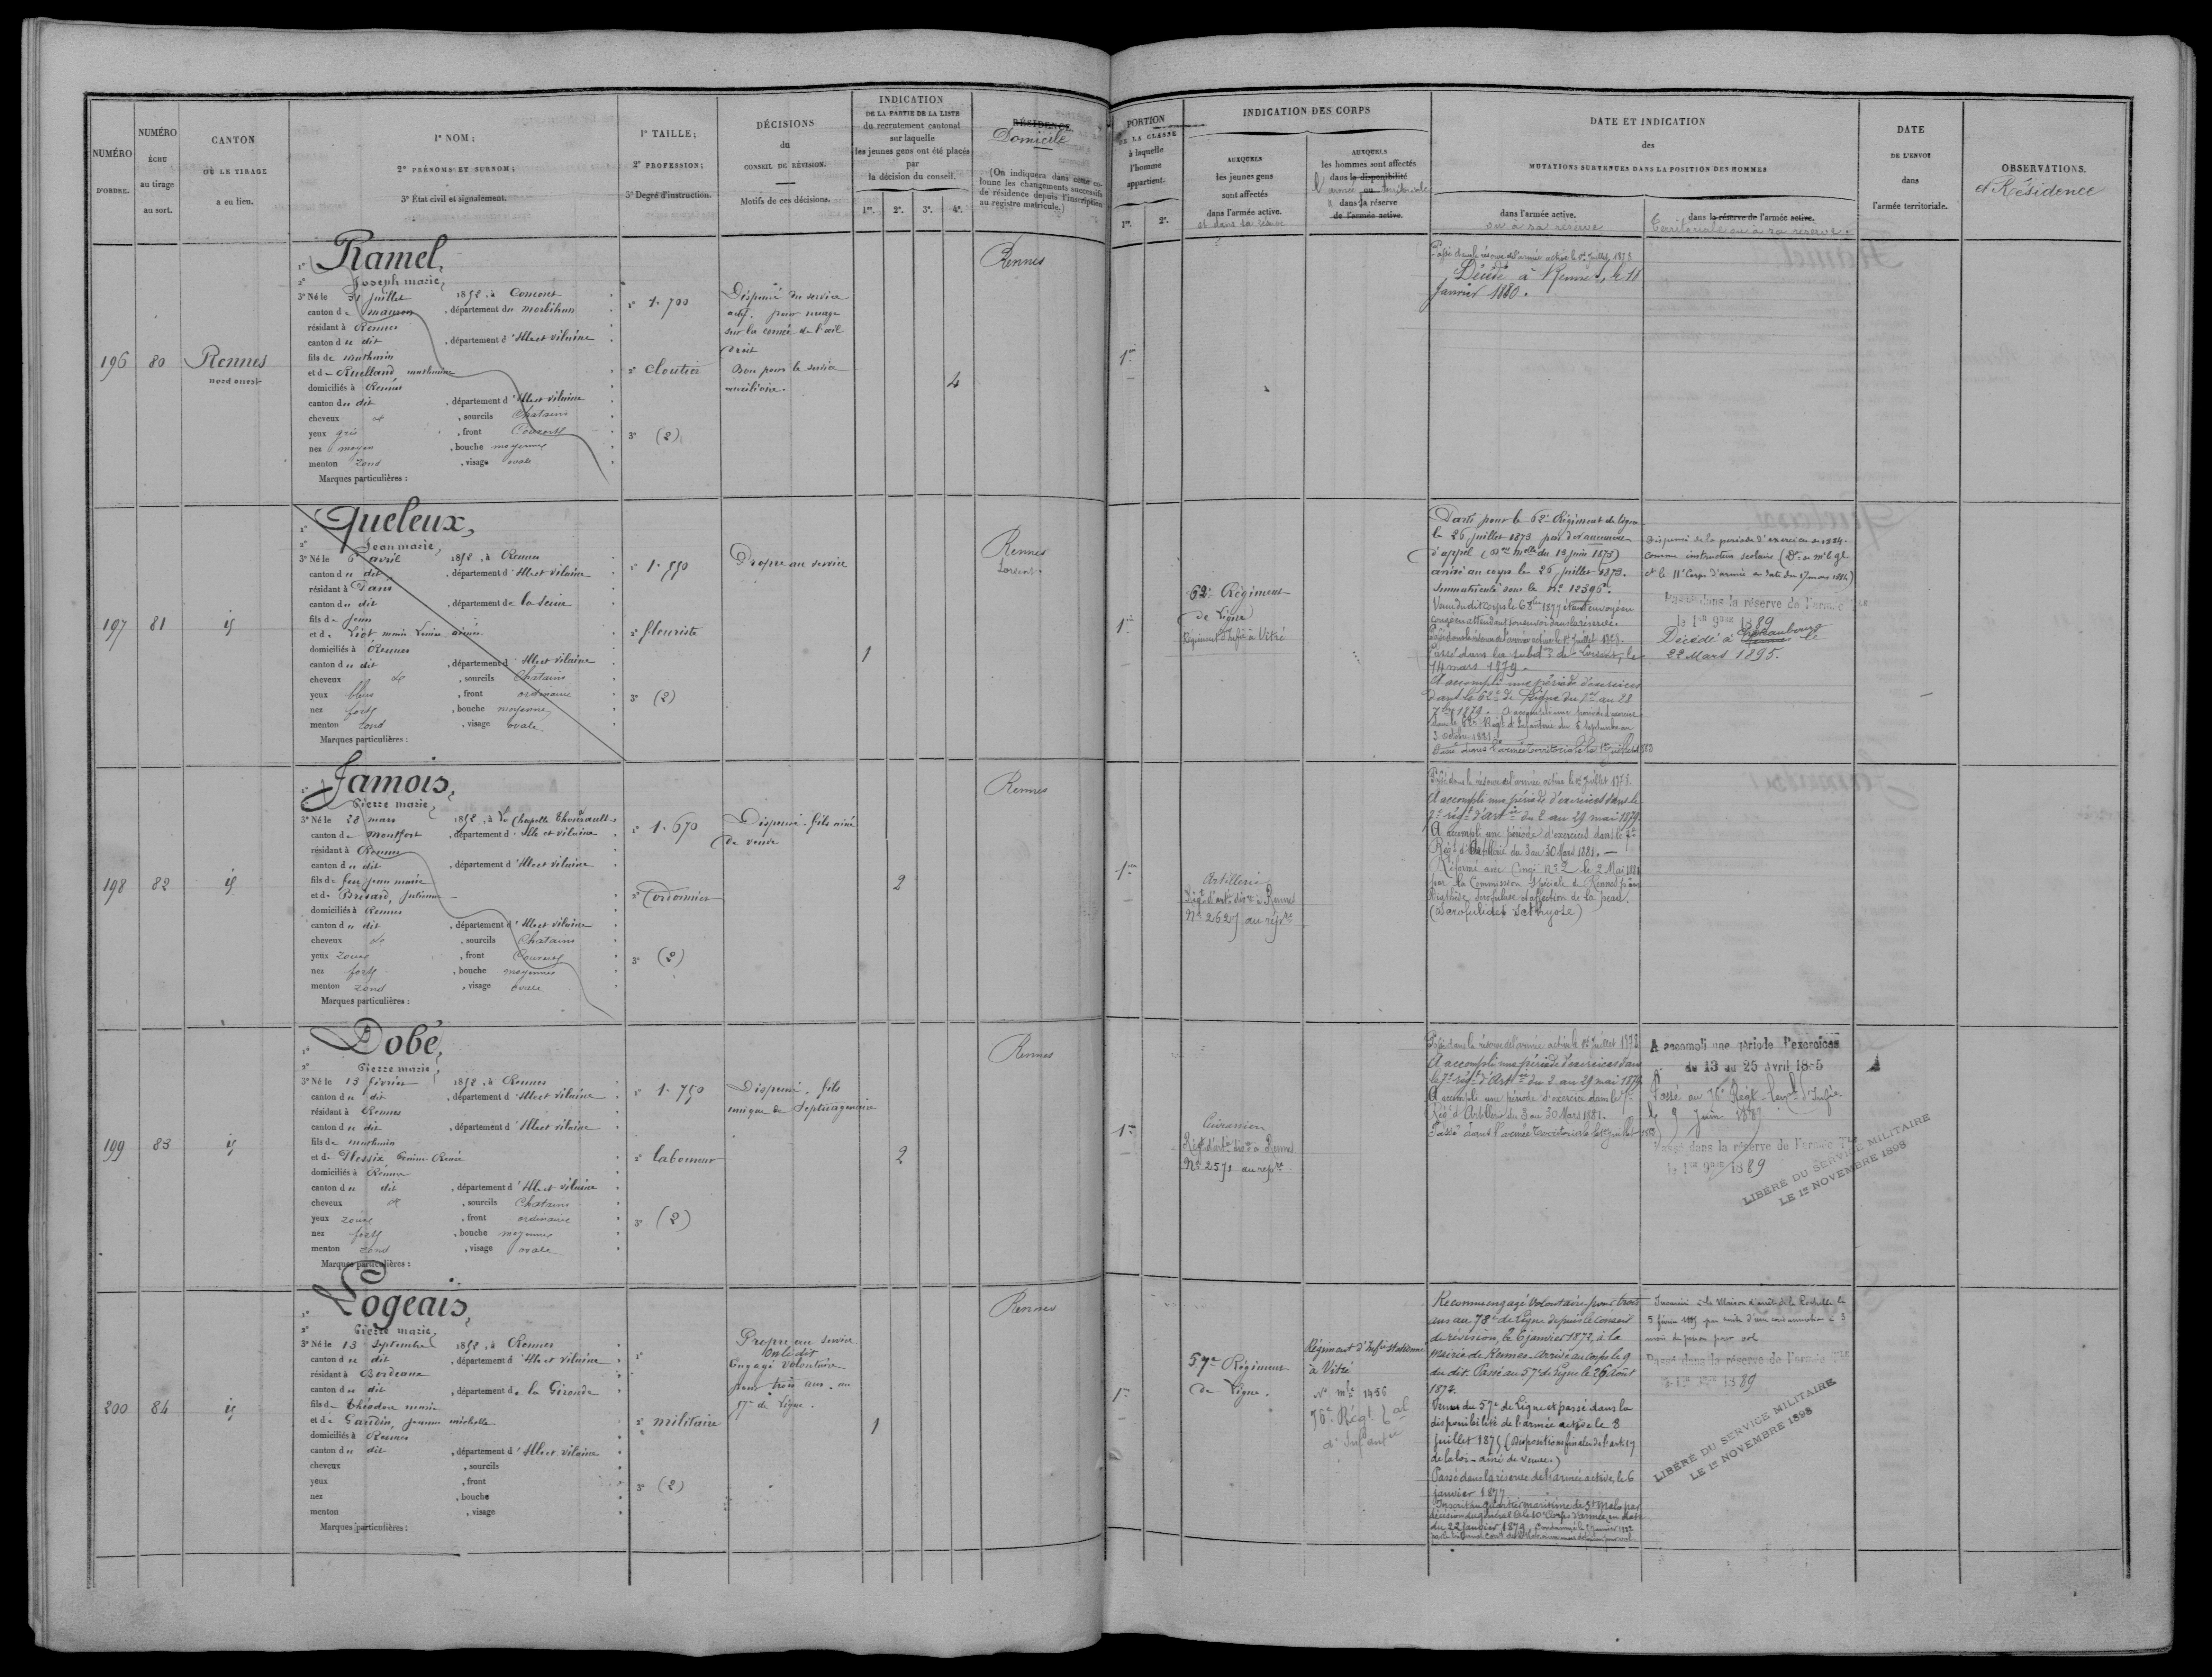 NUMÉRO
D'ORDRE.
NUMÉRO
ÉCHU
au tirage
au sort.
CANTON
OÙ LE TIRAGE
a eu lieu.
1º NOM ;
2º PRÉNOMS ET SURNOM ;
3º État civil et signalement.
1º TAILLE ;
2º PROFESSION ;
3º Degré d'instruction.
DÉCISIONS
du
CONSEIL DE RÉVISION.
Motifs de ces décisions.
INDICATION
DE LA PARTIE DE LA LISTE
du recrutement cantonal
sur laquelle
les jeunes gens ont été placés
par
la décision du conseil.
1re. 2e. 3e. 4e.
RÉSIDENCE.
Domicile
(On indiquera dans cette co-
lonne les changements successifs
de résidence depuis l'inscription
au registre matricule.)
PORTION
DE LA CLASSE
à laquelle
l'homme
appartient.
1re. 2e.
INDICATION DES CORPS
AUXQUELS
les jeunes gens
sont affectés
dans l'armée active.
et dans sa réserve
AUXQUELS
les hommes sont affectés
dans la disponibilité
l'armée ou territoriale
dans sa réserve
de l'armée active.
DATE ET INDICATION
des
MUTATIONS SURVENUES DANS LA POSITION DES HOMMES
dans l'armée active.
ou à sa réserve
dans la réserve de l'armée active.
territoriale ou à sa réserve.
DATE
DE L'ENVOI
dans
l'armée territoriale.
OBSERVATIONS.
et Résidence
196 80 Rennes
nord ouest
1º Ramel,
2º Joseph marie,
3º Né le 31 juillet 1852, à Concoret
canton de mauron, département du morbihan
résidant à Rennes
canton du dit, département d'Ille et vilaine
fils de mathurin
et de Ruelland mathurine
domiciliés à Rennes
canton du dit, département d'Ille et vilaine
cheveux et, sourcils Chatains
yeux gris, front Couvert
nez moyen, bouche moyenne
menton rond, visage ovale
Marques particulières :
1º 1.700
2º Cloutier
3º (2)
Dispensé du service
actif. pour nuage
sur la cornée de l'œil
droit
Bon pour le service
auxiliaire.
4
Rennes
1re
Passé dans la réserve de l'armée active le 1er Juillet 1878
Décédé à Rennes, le 11
Janvier 1880.
197 81 id
1º Queleux,
2º Jean marie,
3º Né le 6 avril 1852, à Rennes
canton du dit, département d'Ille et vilaine
résidant à Paris
canton du dit, département de la Seine
fils de Jean
et de Liot marie Louise aimée
domiciliés à Rennes
canton du dit, département d'Ille et vilaine
cheveux et, sourcils Chatains
yeux bleus, front ordinaire
nez fort, bouche moyenne
menton rond, visage ovale
Marques particulières :
1º 1.550
2º fleuriste
3º (2)
Propre au service
1
Rennes
Lorient.
1re
62e Régiment
de Ligne
Régiment d'Infie à Vitré
Parti pour le 62e Régiment de ligne
le 26 juillet 1873 par devancement
d'appel (Don mlle du 13 juin 1873)
arrivé au corps le 26 juillet 1873.
Immatriculé sous le no 12396.
Venu du dit corps le 6 8bre 1877 étant envoyé en
congé en attendant son envoi dans la réserve.
Passé dans la réserve de l'armée active le 1er Juillet 1878.
Passé dans la subdon de Lorient, le
14 mars 1879.
A accompli une période d'exercices
dans le 62e de Ligne du 1er au 28
7bre 1879. A accompli une période d'exercices
dans le 62e Régt d'Infanterie du 5 septembre au
2 octobre 1881.
Passé dans l'armée territoriale le 1er juillet 1883
Dispensé de la période d'exercices de 1884.
comme instructeur scolaire (Don de mr le gl
ct le 11e Corps d'armée en date du 17 mars 1884)
Passé dans la réserve de l'armée Tle
le 1er 9bre 1889
Décédé à Chateaubourg le
22 Mars 1895.
198 82 id
1º Jamois,
Pierre marie,
3º Né le 28 mars 1852, à La Chapelle Thouarault
canton de Montfort, département d'Ille et vilaine
résidant à Rennes
canton du dit, département d'Ille et vilaine
fils de feu jean marie
et de Brisard, julienne
domiciliés à Rennes
canton du dit, département d'Ille et vilaine
cheveux et, sourcils Chatains
yeux roux, front Couvert
nez fort, bouche moyenne
menton rond, visage ovale
Marques particulières :
1º 1.670
2º Cordonnier
3º (2)
Dispensé. fils ainé
de veuve
2
Rennes
1re
Artillerie
Régt d'artie divre à Rennes
No 2627 au rép.re
Passé dans la réserve de l'armée active le 1er Juillet 1878.
A accompli une période d'exercices dans le
7e régt d'artie du 2 au 29 mai 1879.
A accompli une période d'exercices dans le 7e
Régt d'Artillerie du 3 au 30 Mars 1881. —
Réformé avec Congé No 2 le 2 Mai 1881
par la Commission Spéciale de Rennes pour
Diathèse scrofuleuse et affection de la peau.
(Scrofulides Icthyose)
199 83 id
1º Dobé,
2º Pierre marie,
3º Né le 13 février 1852, à Rennes
canton du dit, département d'Ille et vilaine
résidant à Rennes
canton du dit, département d'Ille et vilaine
fils de mathurin
et de Plessix Renée
domiciliés à Rennes
canton du dit, département d'Ille et vilaine
cheveux et, sourcils Chatains
yeux roux, front ordinaire
nez fort, bouche moyenne
menton rond, visage ovale
Marques particulières :
1º 1.750
2º laboureur
3º (2)
Dispensé. fils
unique de Septuagénaire
2
Rennes
1re
Cuirassiers
Régt d'artie divre à Rennes
No 2571 au rép.re
Passé dans la réserve de l'armée active le 1er Juillet 1878
A accompli une période d'exercices dans
le 7e régt d'Artie du 2 au 29 mai 1879.
A accompli une période d'exercice dans le 7e
Régt d'Artillerie du 3 au 30 Mars 1881.
Passé dans l'armée territoriale le 1er juillet 1883
A accompli une période d'exercices
du 13 au 25 Avril 1885
Passé au 76e Régt terr.al d'Infie
le 9 Juin 1887
Passé dans la réserve de l'armée Tle
le 1er 9bre 1889
LIBÉRÉ DU SERVICE MILITAIRE
LE 1er NOVEMBRE 1898
200 84 id
1º Logeais,
2º Pierre marie,
3º Né le 13 septembre 1852, à Rennes
canton du dit, département d'Ille et vilaine
résidant à Bordeaux
canton du dit, département de la Gironde
fils de théodore marie
et de Gaudin, jeanne michelle
domiciliés à Rennes
canton du dit, département d'Ille et vilaine
cheveux, sourcils
yeux, front
nez, bouche
menton, visage
Marques particulières :
1º
2º militaire
3º (2)
Propre au service
On le dit
Engagé volontaire
pour trois ans. au
57e de Ligne.
1
Rennes
1re
57e Régiment
de Ligne.
Régiment d'Infie stationné
à Vitré
No mle 1456
76e Régt tal
d'Infantie
Reconnu engagé Volontaire pour trois
ans au 78e de Ligne depuis le conseil
de révision, le 6 janvier 1872, à la
mairie de Rennes. Arrivé au corps le 9
du dit. Passé au 57e de Ligne le 26 Août
1873.
Venu du 57e de Ligne et passé dans la
disponibilité de l'armée active le 8
juillet 1875 (Dispositions finales de l'art. 17
de la loi - ainé de veuve.)
Passé dans la réserve de l'armée active, le 6
janvier 1877
Inscrit au quartier maritime de St Malo par
décision du général Ct le 10e Corps d'armée, en date
du 22 janvier 1879.
Incarcéré à la Maison d'arrêt de la Rochelle le
5 février 1885 par suite d'une condamnation à 3
mois de prison pour vol
Passé dans la réserve de l'armée Tle
le 1er 9bre 1889
LIBÉRÉ DU SERVICE MILITAIRE
LE 1er NOVEMBRE 1898